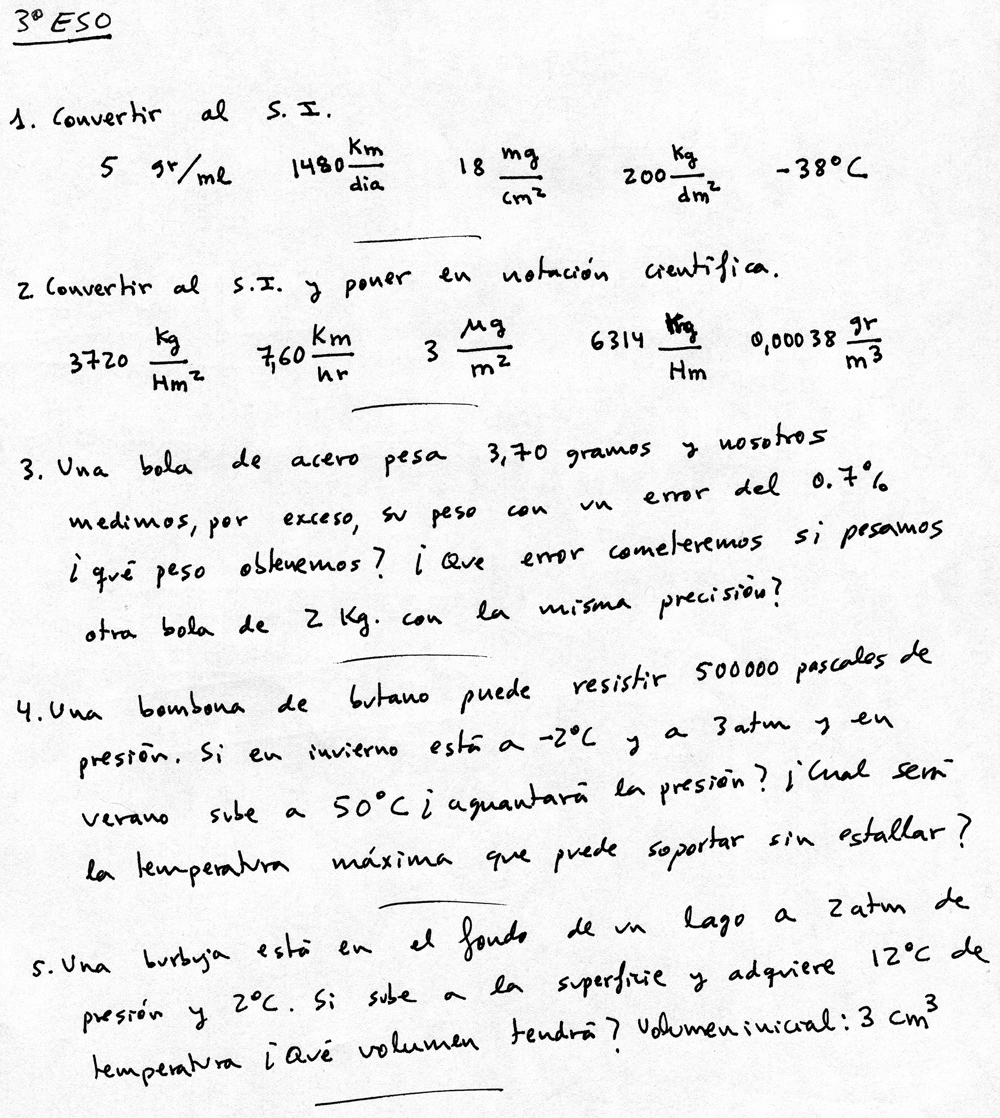 3º ESO
1. Convertir al S.I.
5 gr/ml 1480 Km/dia 18 mg/cm² 200 Kg/dm² -38ºC
2 Convertir al S.I. y poner en notación científica.
3720 Kg/Hm² 7,60 Km/hr 3 μg/m² 6314 /Hm 0,00038 gr/m³
3. Una bola de acero pesa 3,70 gramos y nosotros
medimos, por exceso, su peso con un error del 0.7%
¿qué peso obtenemos? ¿Que error cometeremos si pesamos
otra bola de 2 Kg. con la misma precisión?
4. Una bombona de butano puede resistir 500000 pascales de
presión. Si en invierno está a -2ºC y a 3 atm y en
verano sube a 50ºC ¿aguantará la presión? ¿Cual será
la temperatura máxima que puede soportar sin estallar?
5. Una burbuja está en el fondo de un lago a 2 atm de
presión y 2ºC. Si sube a la superficie y adquiere 12ºC de
temperatura ¿Qué volumen tendrá? Volumen inicial: 3 cm³